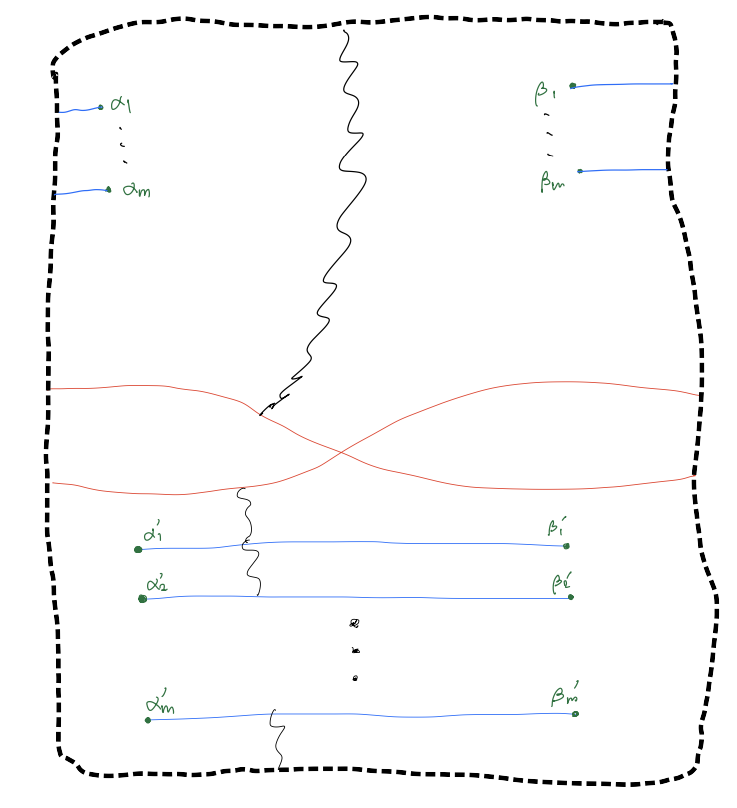 α1 β1
αm βm
α'1 β'1
α'2 β'2
α'm βm'